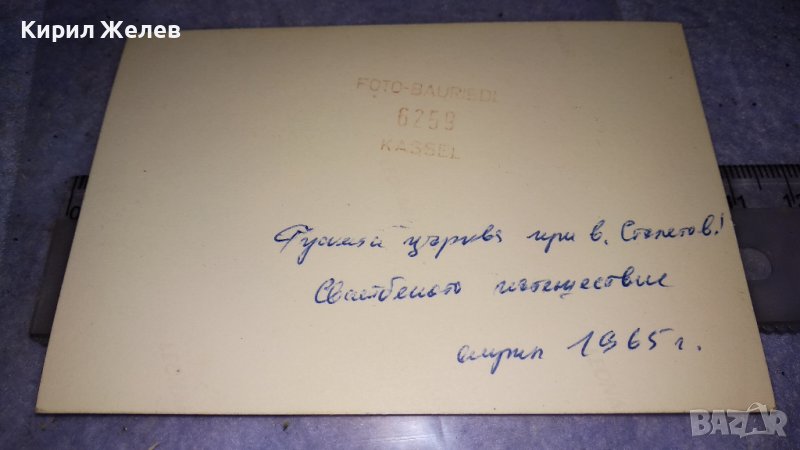 Кирил Желев
FOTO-BAURIEDL
6259
KASSEL
Руската църква при в. Столетов!
Сватбеното пътешествие
април 1965 г.
BAZAR